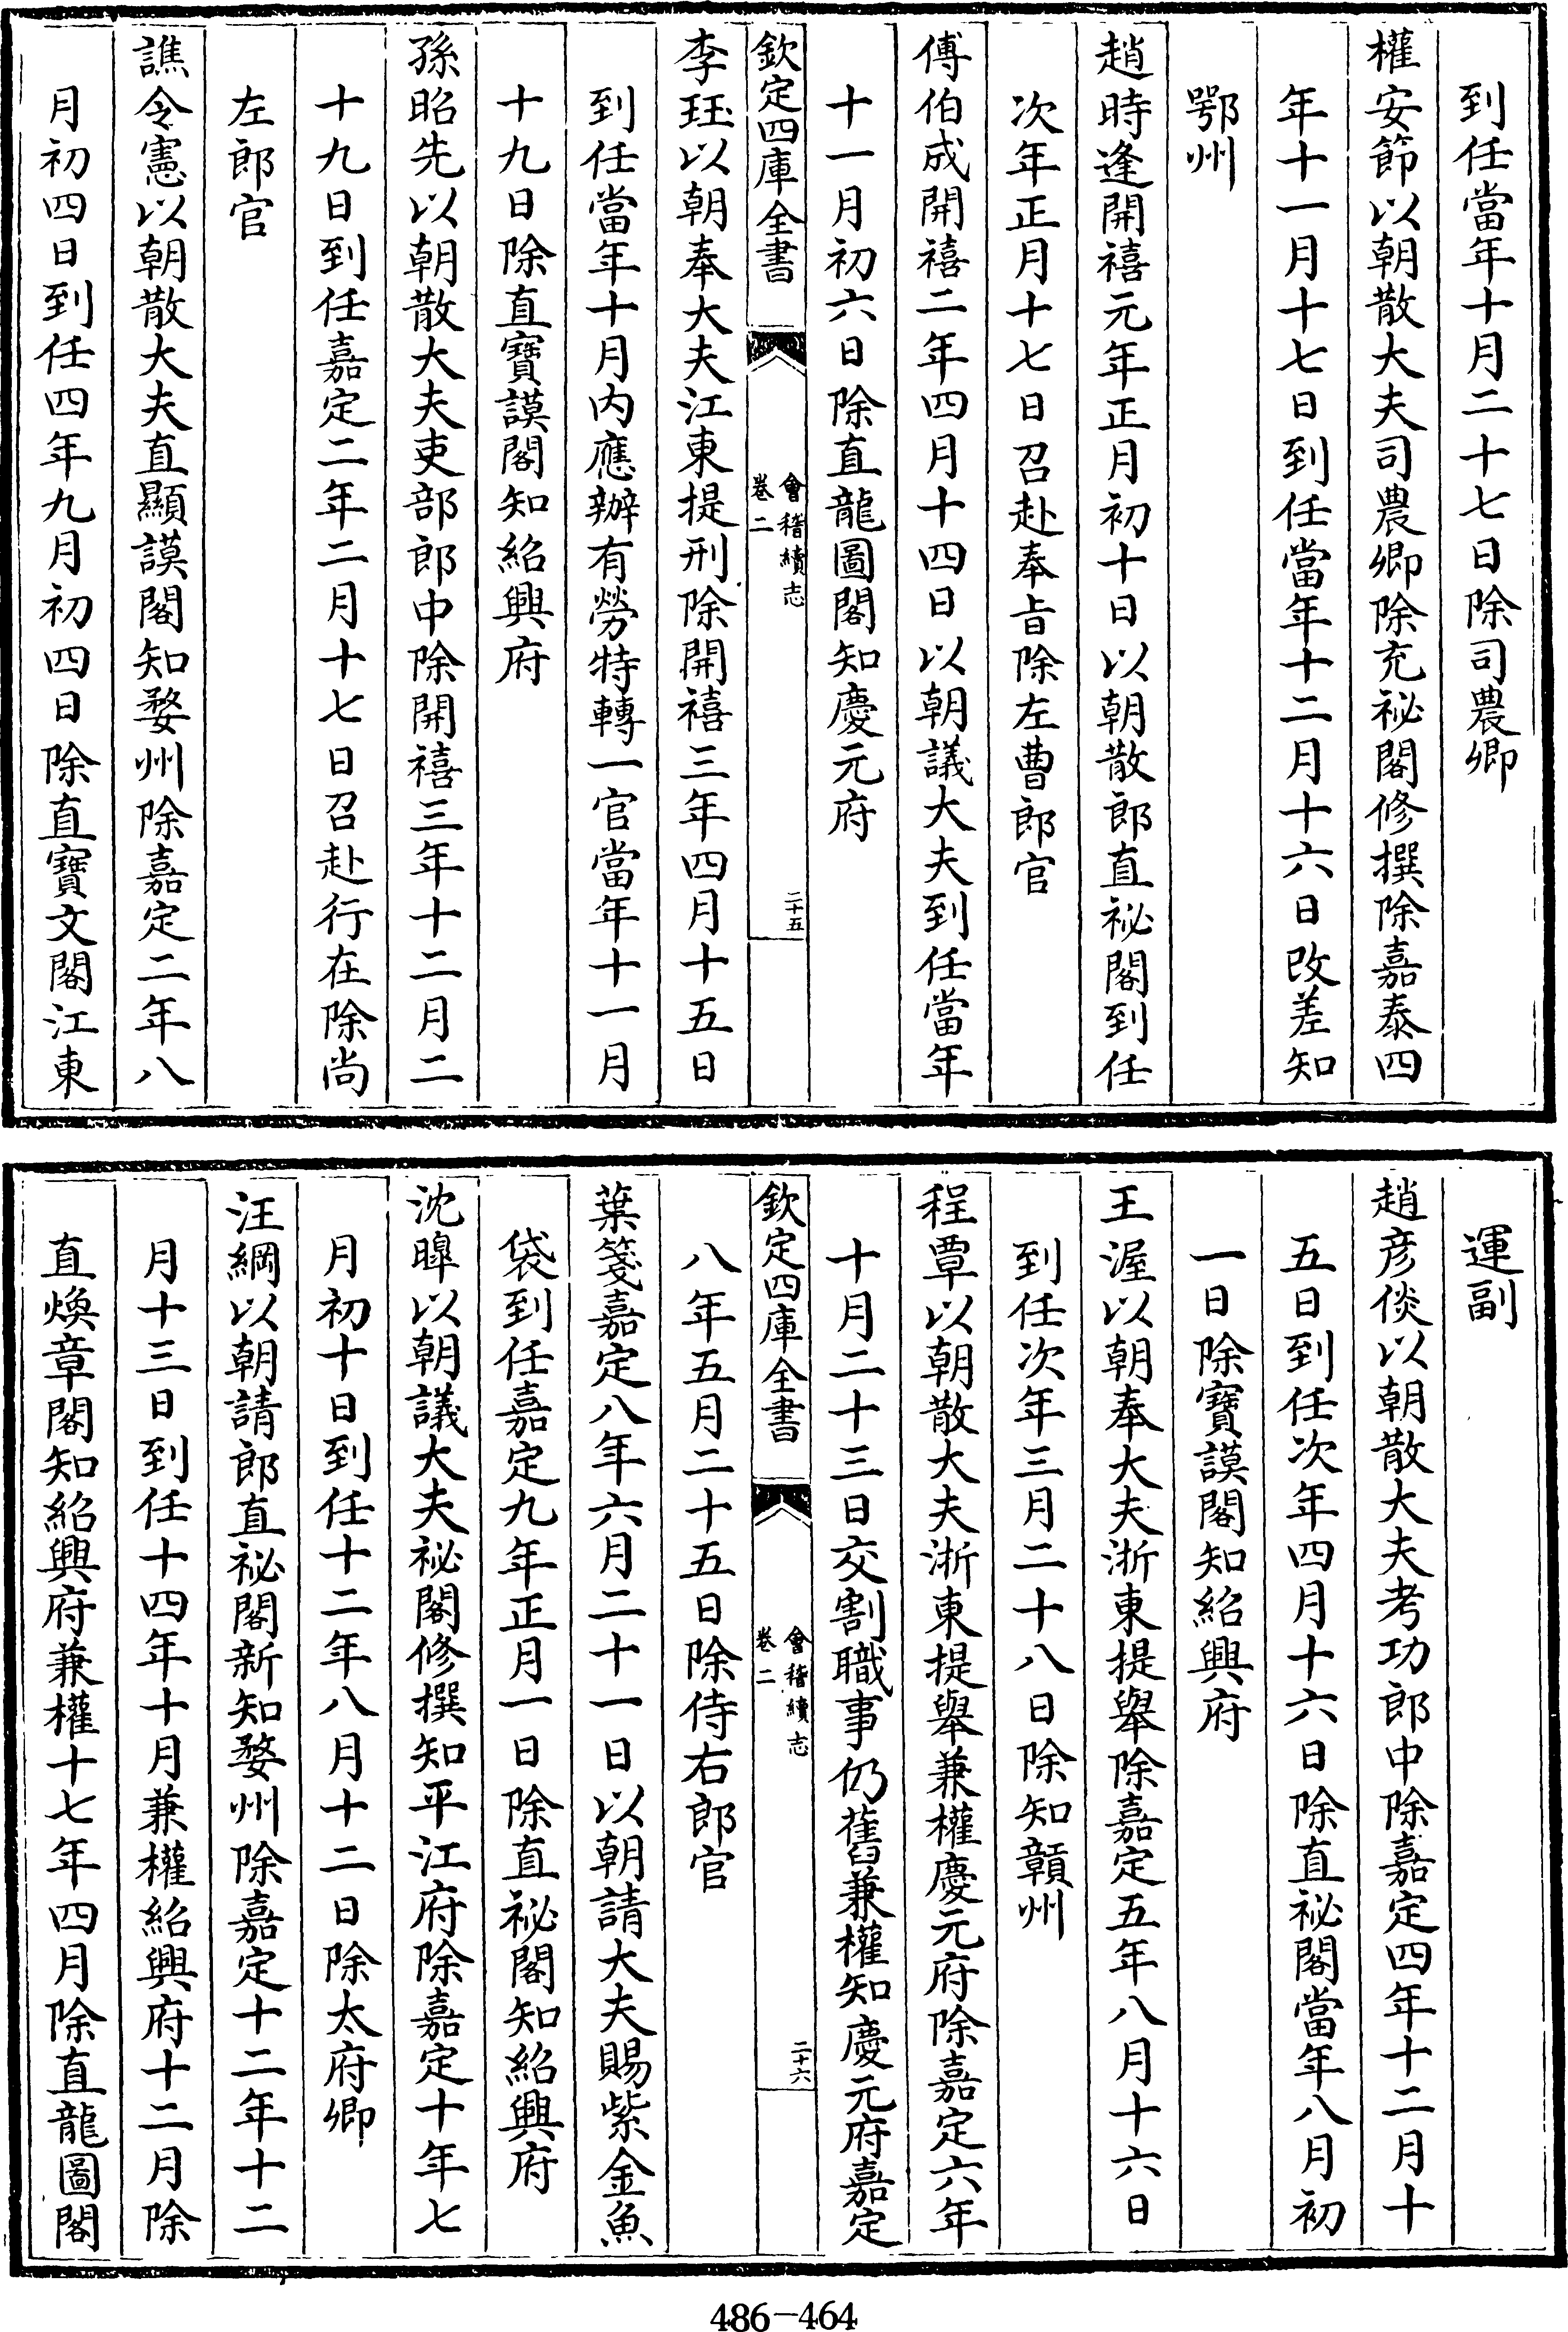 到任當年十月二十七日除司農卿
權安節以朝散大夫司農卿除充祕閣修撰除嘉泰四
年十一月十七日到任當年十二月十六日改差知
鄂州
趙時逢開禧元年正月初十日以朝散郎直祕閣到任
次年正月十七日召赴奉㫖除左曹郎官
傅伯成開禧二年四月十四日以朝議大夫到任當年
十一月初六日除直龍圖閣知慶元府
欽定四庫全書
會稽續志
卷二
二十五
李珏以朝奉大夫江東提刑除開禧三年四月十五日
到任當年十月內應辦有勞特轉一官當年十一月
十九日除直寶謨閣知紹興府
孫昭先以朝散大夫吏部郎中除開禧三年十二月二
十九日到任嘉定二年二月十七日召赴行在除尚
左郎官
譙令憲以朝散大夫直顯謨閣知婺州除嘉定二年八
月初四日到任四年九月初四日除直寶文閣江東
運副
趙彦倓以朝散大夫考功郎中除嘉定四年十二月十
五日到任次年四月十六日除直祕閣當年八月初
一日除寶謨閣知紹興府
王渥以朝奉大夫浙東提舉除嘉定五年八月十六日
到任次年三月二十八日除知贛州
程覃以朝散大夫浙東提舉兼權慶元府除嘉定六年
十月二十三日交割職事仍舊兼權知慶元府嘉定
欽定四庫全書
會稽續志
卷二
二十六
八年五月二十五日除侍右郎官
葉箋嘉定八年六月二十一日以朝請大夫賜紫金魚
袋到任嘉定九年正月一日除直祕閣知紹興府
沈暐以朝議大夫祕閣修撰知平江府除嘉定十年七
月初十日到任十二年八月十二日除太府卿
汪綱以朝請郎直祕閣新知婺州除嘉定十二年十二
月十三日到任十四年十月兼權紹興府十二月除
直煥章閣知紹興府兼權十七年四月除直龍圖閣
486-464